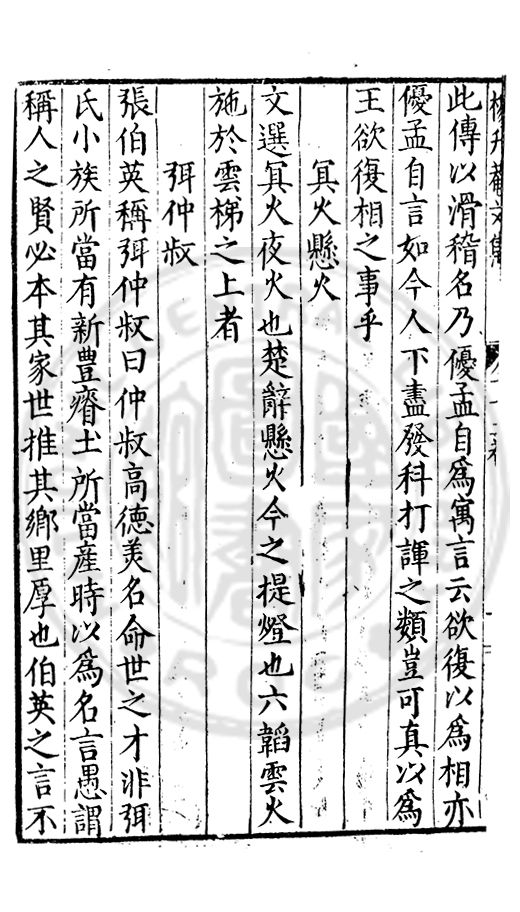 此傳以滑稽名乃優孟自爲寓言云欲復以爲相亦
優孟自言如今人下盡發科打諢之類豈可真以爲
王欲復相之事乎
冥火懸火
文選冥火夜火也楚辭懸火今之提燈也六韜雲火
施於雲梯之上者
弭仲叔
張伯英稱弭仲叔曰仲叔高德美名命世之才非弭
氏小族所當有新豊瘠土所當産時以爲名言愚謂
稱人之賢必本其家世推其鄉里厚也伯英之言不